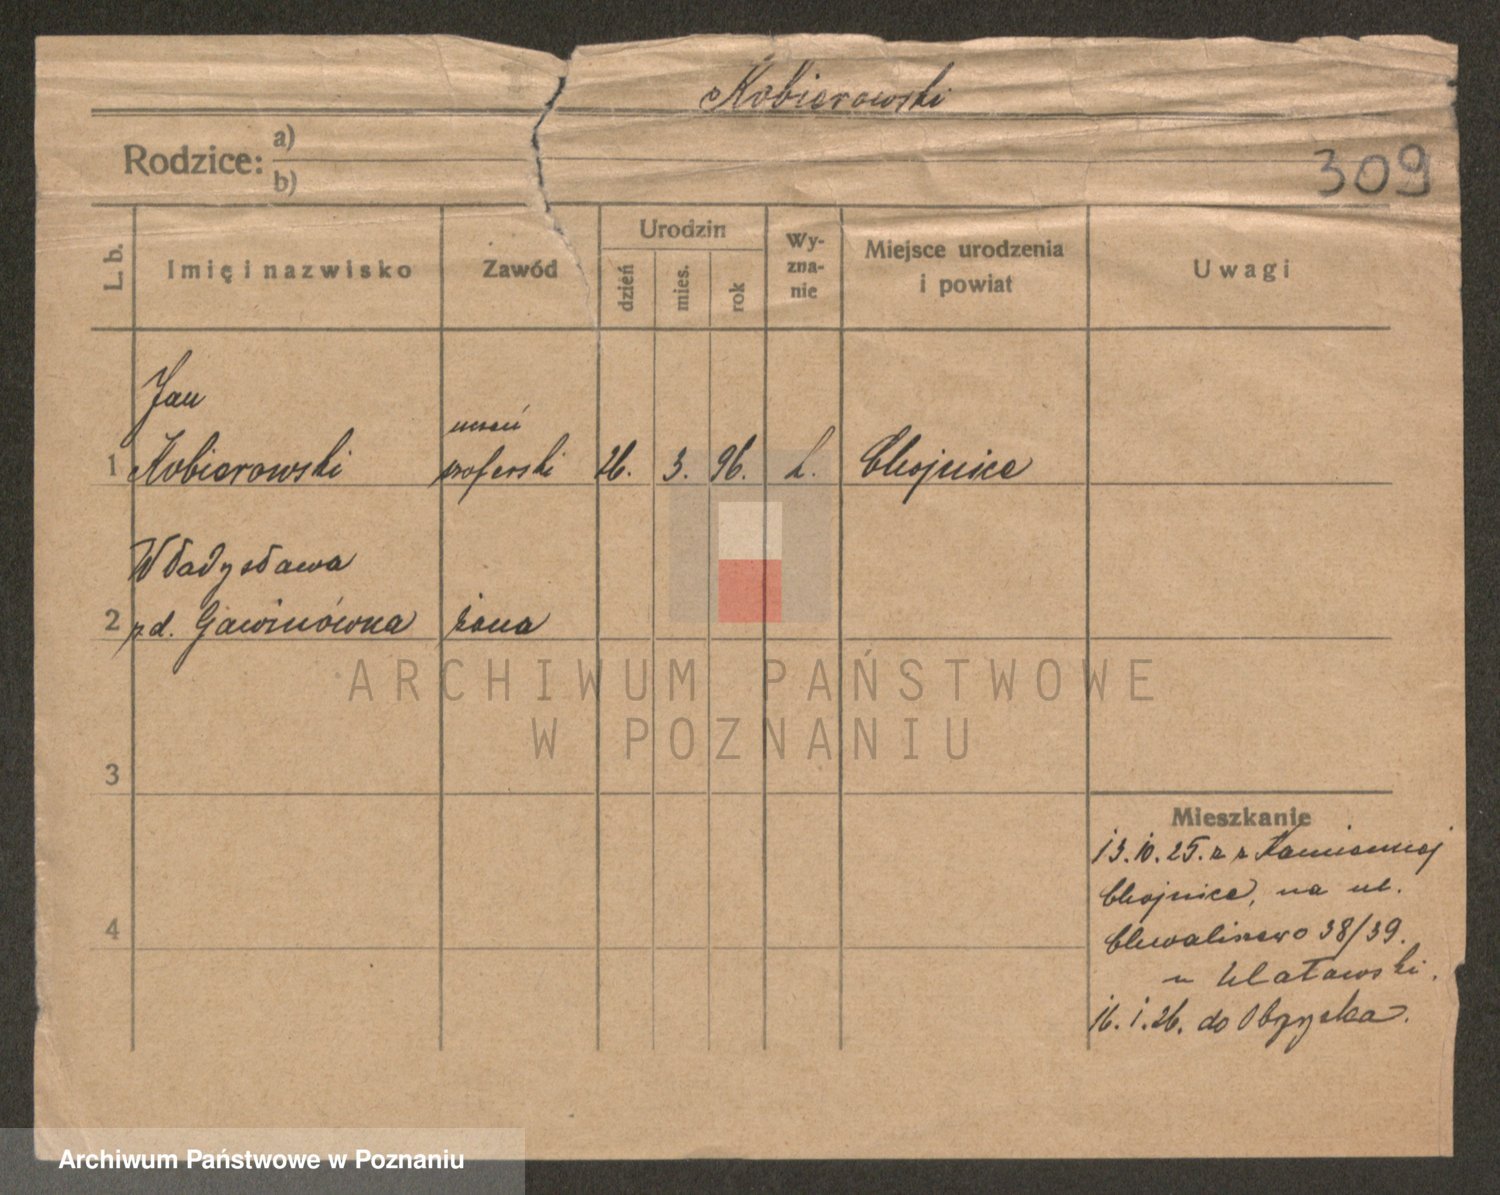 Kobierowski
Rodzice: a)
b)
309
L. b.
Imię i nazwisko
Zawód
Urodzin
dzień
mies.
rok
Wy-
zna-
nie
Miejsce urodzenia
i powiat
Uwagi
Jan
uczeń
1 Kobierowski szoferski 26. 3. 96. k. Chojnice
Władysława
2 zd. Gawinówna żona
3
4
Mieszkanie
13.10.25. z
Chojnice, na ul.
Chwaliszewo 38/39.
u Ulatowski.
16.1.26. do Obrzycka.
ARCHIWUM PAŃSTWOWE
W POZNANIU
Archiwum Państwowe w Poznaniu